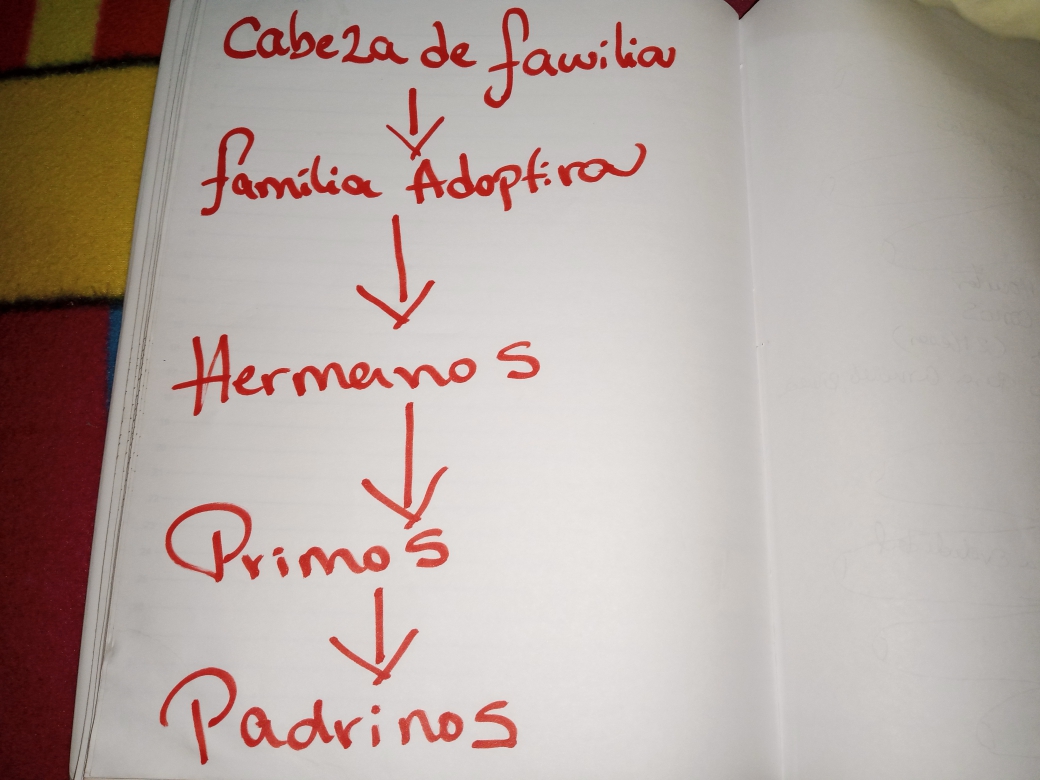 Cabeza de familia
familia Adoptiva
Hermanos
Primos
Padrinos